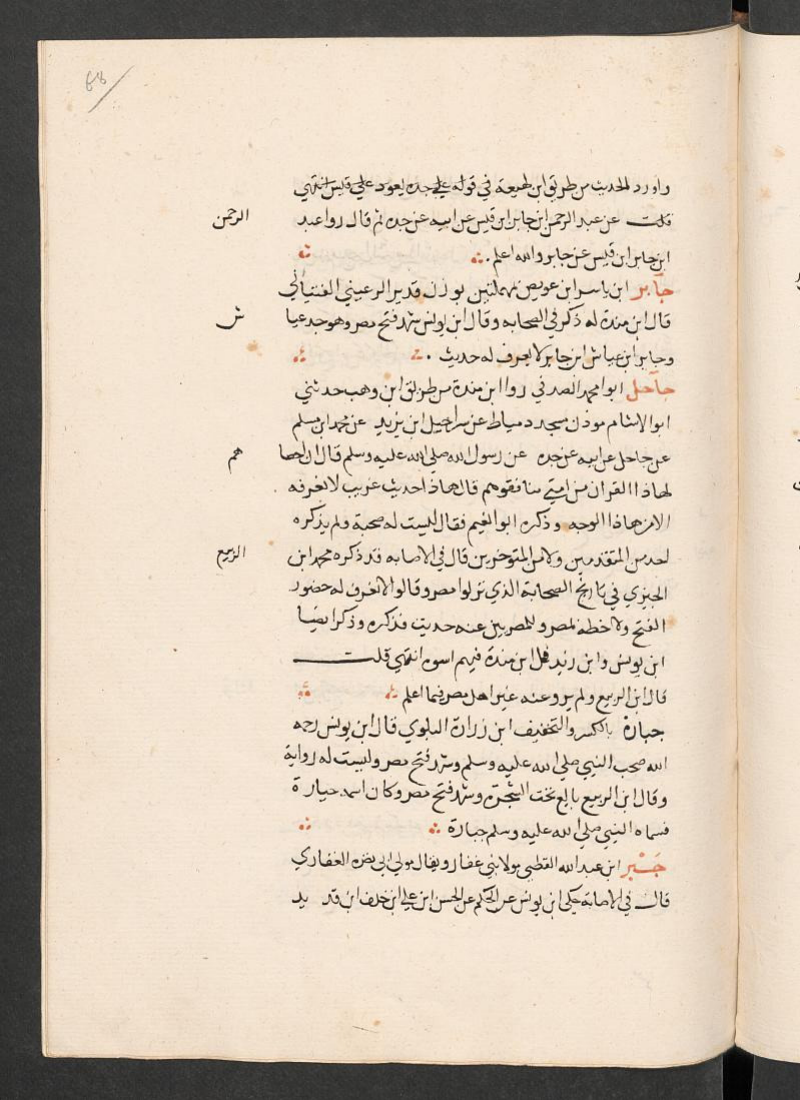 واورد الحديث من طريق ابن لهيعة في قوله علي جده يعود علي قيس انتهي
قلت عن عبد الرحمن ابن جابر ابن قيس عن ابيه عن جده ثم قال روا عبد الرحمن
ابن جابر ابن قيس عن جابر والله اعلم
جابر ابن ياسر ابن عويص مهملتين بوزن قدير الرعيني القتباني
قال ابن مندة له ذكر في الصحابه وقال ابن يونس شهد فتح مصر وهو جد عيا ش
وجابر ابن عياش ابن جابر لا يعرف له حديث
جاحل ابوا محمد الصدفي روا ابن مندة من طريق ابن وهب حدثني
ابو الاشام موذن مسجد دمياط عن شراحيل ابن يزيد عن محمد ابن مسلم
عن جاحل عن ابيه عن جده عن رسول الله صلي الله عليه وسلم قال ان احصا هم
لهاذا القران من امتي منافقوهم قال هاذا حديث غريب لا نعرفه
الا من هاذا الوجه وذكره ابوا نعيم فقال ليست له صحبة ولم يذكره
احد من المتقدمين ولا من المتوخرين قال في الاصابه قد ذكره محمد ابن الربيع
الجيزي في تاريخ الصحابة الذي نزلوا مصر وقالوا لا نعرف له حضور
الفتح ولا خطة لمصر وللمصريين عنه حديث فذكره وذكر ايضيا
ابن يونس وابن زبد فل ابن مندة فيهم اسوه انتهي قلت
قال ابن الربيع ولم يرو عنه غير اهل مصر فيما اعلم
جبارة بالكسر والتخفيف ابن زرارة البلوي قال ابن يونس رحمه
الله صحب النبي صلي الله عليه وسلم وشهد فتح مصر وليست له رواية
وقال ابن الربيع بايع تحت الشجرة وشهد فتح مصر وكان اسمه جبارة
فسماه النبي صلي الله عليه وسلم جبارة
جبر ابن عبد الله القطبي مولا بني غفار ويقال مولي ابي بصرة الغفاري
قال في الاصابه حكي ابن يونس عن الحكم عن الحسن ابن علي ابن خلف ابن قد يد